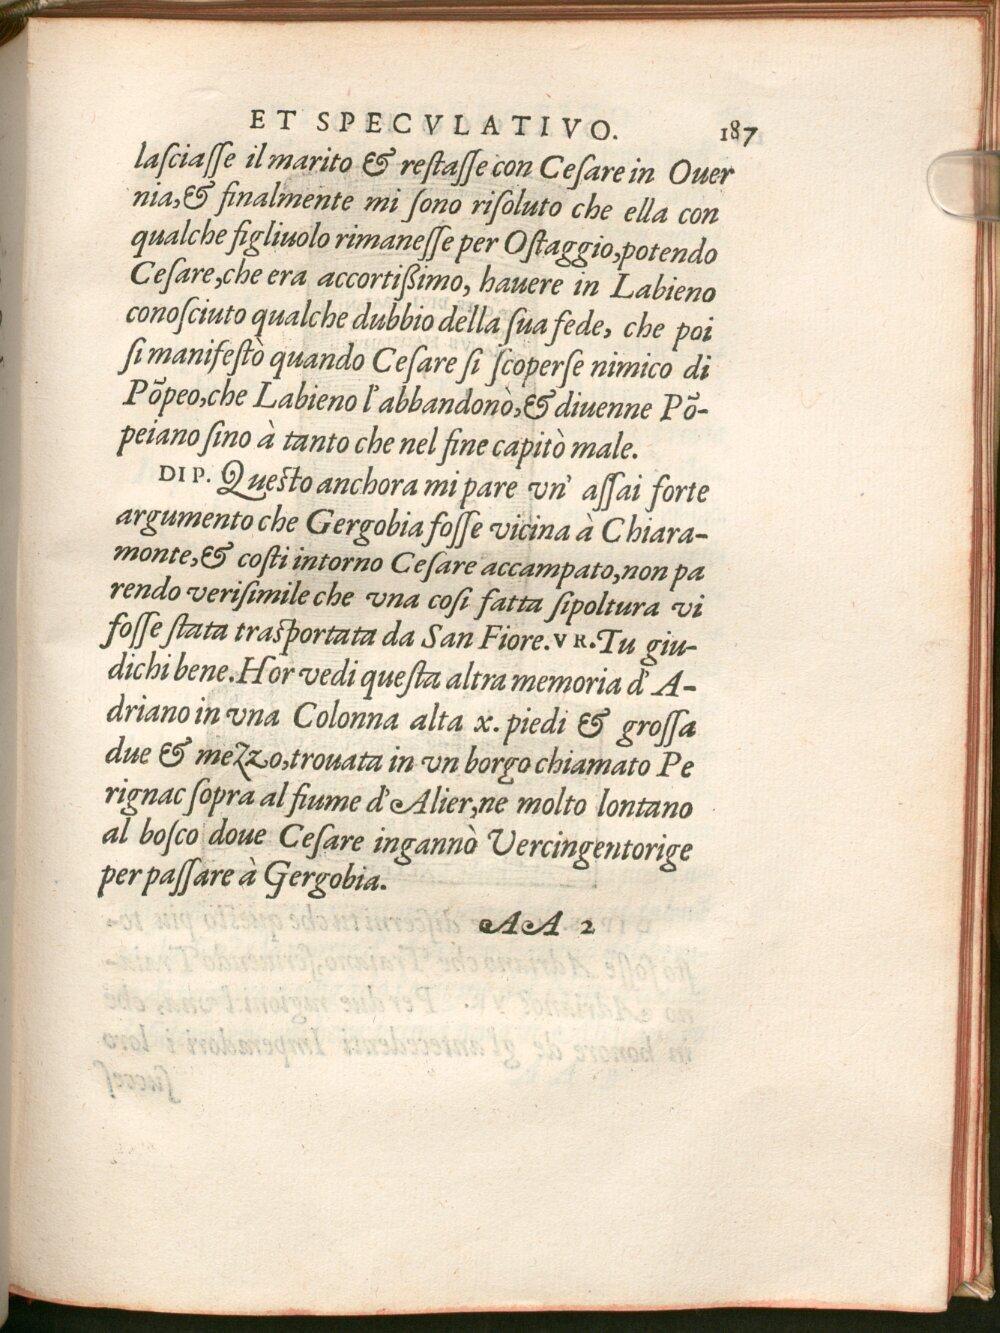 ET SPECVLATIVO. 187
lasciasse il marito & restasse con Cesare in Ouer
nia,& finalmente mi sono risoluto che ella con
qualche figliuolo rimanesse per Ostaggio,potendo
Cesare,che era accortißimo, hauere in Labieno
conosciuto qualche dubbio della sua fede, che poi
si manifestò quando Cesare si scoperse nimico di
Põpeo,che Labieno l'abbandonò,& diuenne Põ-
peiano sino à tanto che nel fine capitò male.
DIP. Questo anchora mi pare vn' assai forte
argumento che Gergobia fosse vicina à Chiara-
monte,& costi intorno Cesare accampato,non pa
rendo verisimile che vna cosi fatta sipoltura vi
fosse stata trasportata da San Fiore. VR. Tu giu-
dichi bene. Hor vedi questa altra memoria d' A-
driano in vna Colonna alta x. piedi & grossa
due & mezzo,trouata in vn borgo chiamato Pe
rignac sopra al fiume d'Alier,ne molto lontano
al bosco doue Cesare ingannò Vercingentorige
per passare à Gergobia.
AA 2